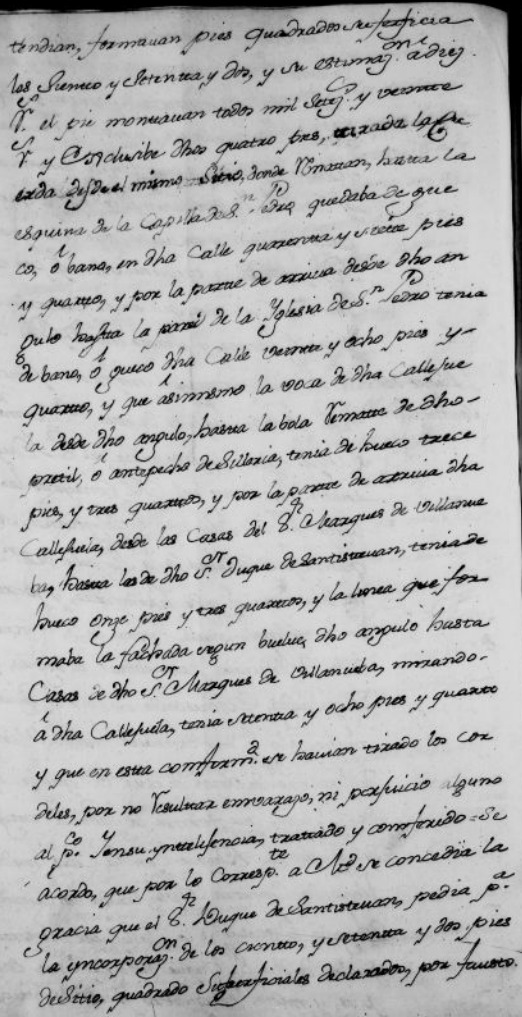 tendian, formavan pies quadrados superficia
les Ciento y Setenta y dos, y su estimaz.on a diez
R.s el pie montavan todos mil Sete.s y veinte
R.s y Conclusibe dhos quatro pies, tirada la Cu
erda desde el mismo Sitio, donde Rematan, hasta la
esquina de la Capilla de S.n Pedro, quedaba de gue
co, ó bano, en dha Calle quarenta y siete pies
y quarto, y por la parte de arriva desde dho an
gulo hasta la pared de la Yglesia de S.n Pedro tenia
de bano, ó gueco dha Calle veinte y ocho pies y
quarto, y que ásimismo la voca de dha Callejue
la desde dho angulo, hasta la bola Remate de dho
pretil, ó antepecho de Silleria, tenia de hueco trece
pies, y tres quartos, y por la parte de arriva dha
Callejuela, desde las Casas del S.r Marques de Villanue
ba, hasta las de dho S.or Duque de Santistevan, tenia de
hueco onze pies y tres quartos, y la linea que for
maba la fachada segun buelve dho angulo hasta
Casas de dho S.or Marques de Villanueba, mirando
á dha Callejuela, tenia setenta y ocho pies y quarto
y que en esta conform.d se havian tirado los cor
deles, por no Resultar embarazo, ni perjuicio alguno
al p.co Y en su ynteligencia, tratado y conferido = Se
acordo, que por lo Corresp.te a M.d se concedia la
gracia que el S.r Duque de Santistevan, pedia p.a
la yncorporaz.on de los ciento, y setenta y dos pies
de Sitio, quadrado Superficiales declarados, por fausto